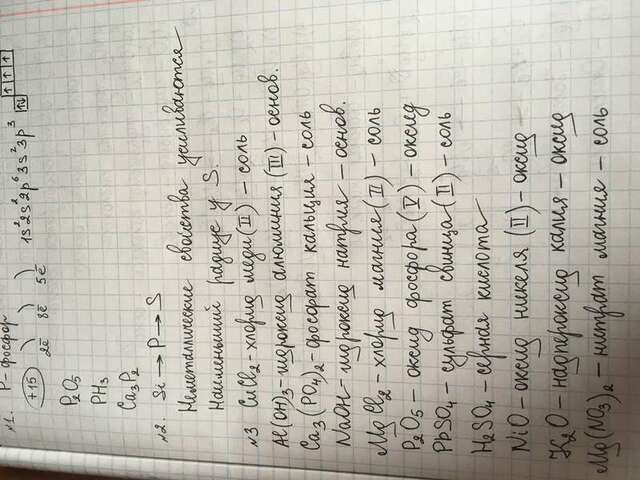 №1. P - фосфор
+15 ) ) ) 1s²2s²2p⁶3s²3p³ ↑↓ ↑ ↑ ↑
2ē 8ē 5ē
P₂O₅
PH₃
Ca₃P₂
№2. Si → P → S
Неметаллические свойства усиливаются
Наименьший радиус у S.
№3 CuCl₂ - хлорид меди (II) - соль
Al(OH)₃ - гидроксид алюминия (III) - основ.
Ca₃(PO₄)₂ - фосфат кальция - соль
NaOH - гидроксид натрия - основ.
MgCl₂ - хлорид магния (II) - соль
P₂O₅ - оксид фосфора (V) - оксид
PbSO₄ - сульфат свинца (II) - соль
H₂SO₄ - серная кислота
NiO - оксид никеля (II) - оксид
K₂O - надпероксид калия - оксид
Mg(NO₃)₂ - нитрат магния - соль